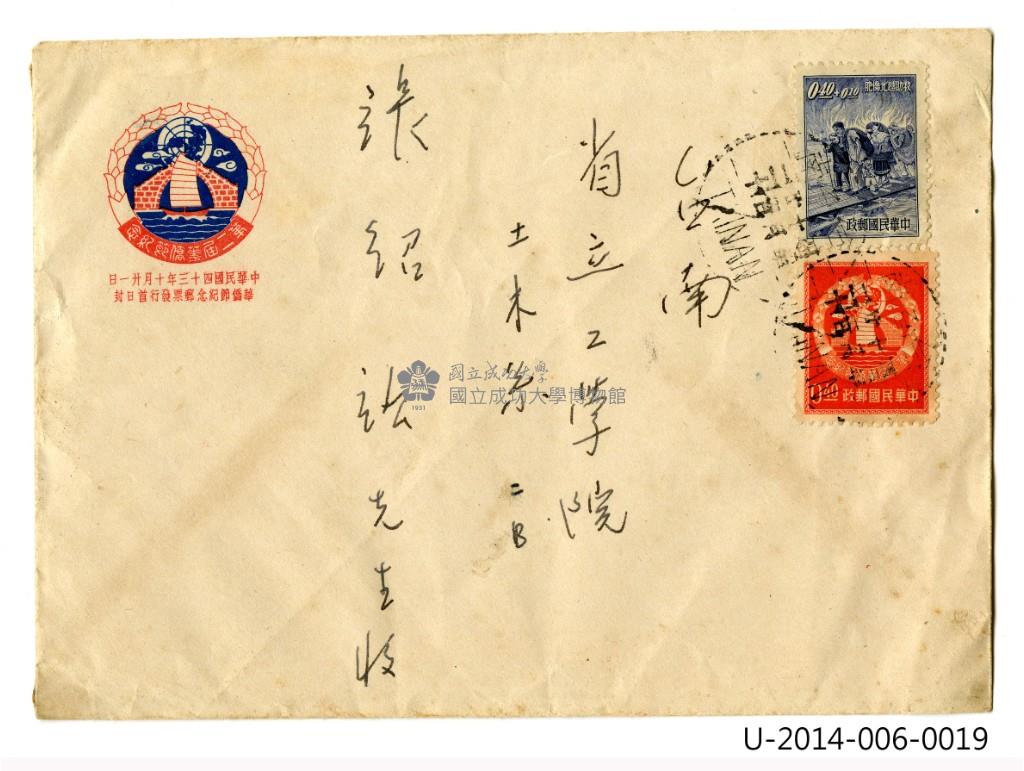 第一屆華僑節紀念
日一廿月十年三十四國民華中
封日首行發票郵念紀節僑華
0.40+0.10
胞僑北越助救
政郵國民華中
0.40
政郵國民華中
TAINAN
台南
省立工學院
土木系二B
張紹
先生收
國立成功大學
國立成功大學博物館
1931
U-2014-006-0019